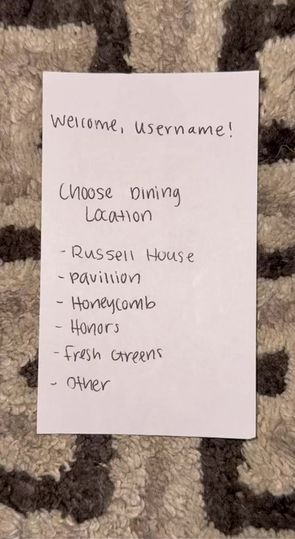 Welcome, username!
Choose Dining
Location
- Russell House
- Pavillion
- Honeycomb
- Honors
- Fresh Greens
- Other